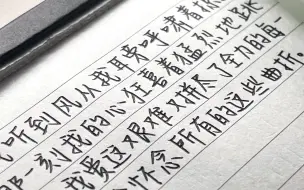 听到风从我耳旁呼啸着
那一刻我的心狂喜着猛烈地跳
我费这又艰难又拼尽了全力的每一
怀念所有的这些曲折